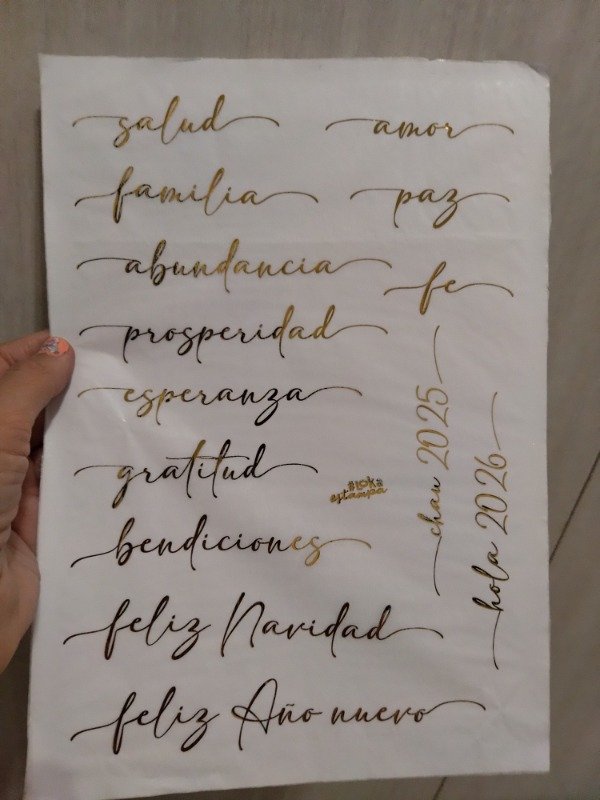 salud
amor
familia
paz
abundancia
fe
prosperidad
esperanza
gratitud
bendiciones
feliz Navidad
feliz Año nuevo
chau 2025
hola 2026
#LOK@
estampa